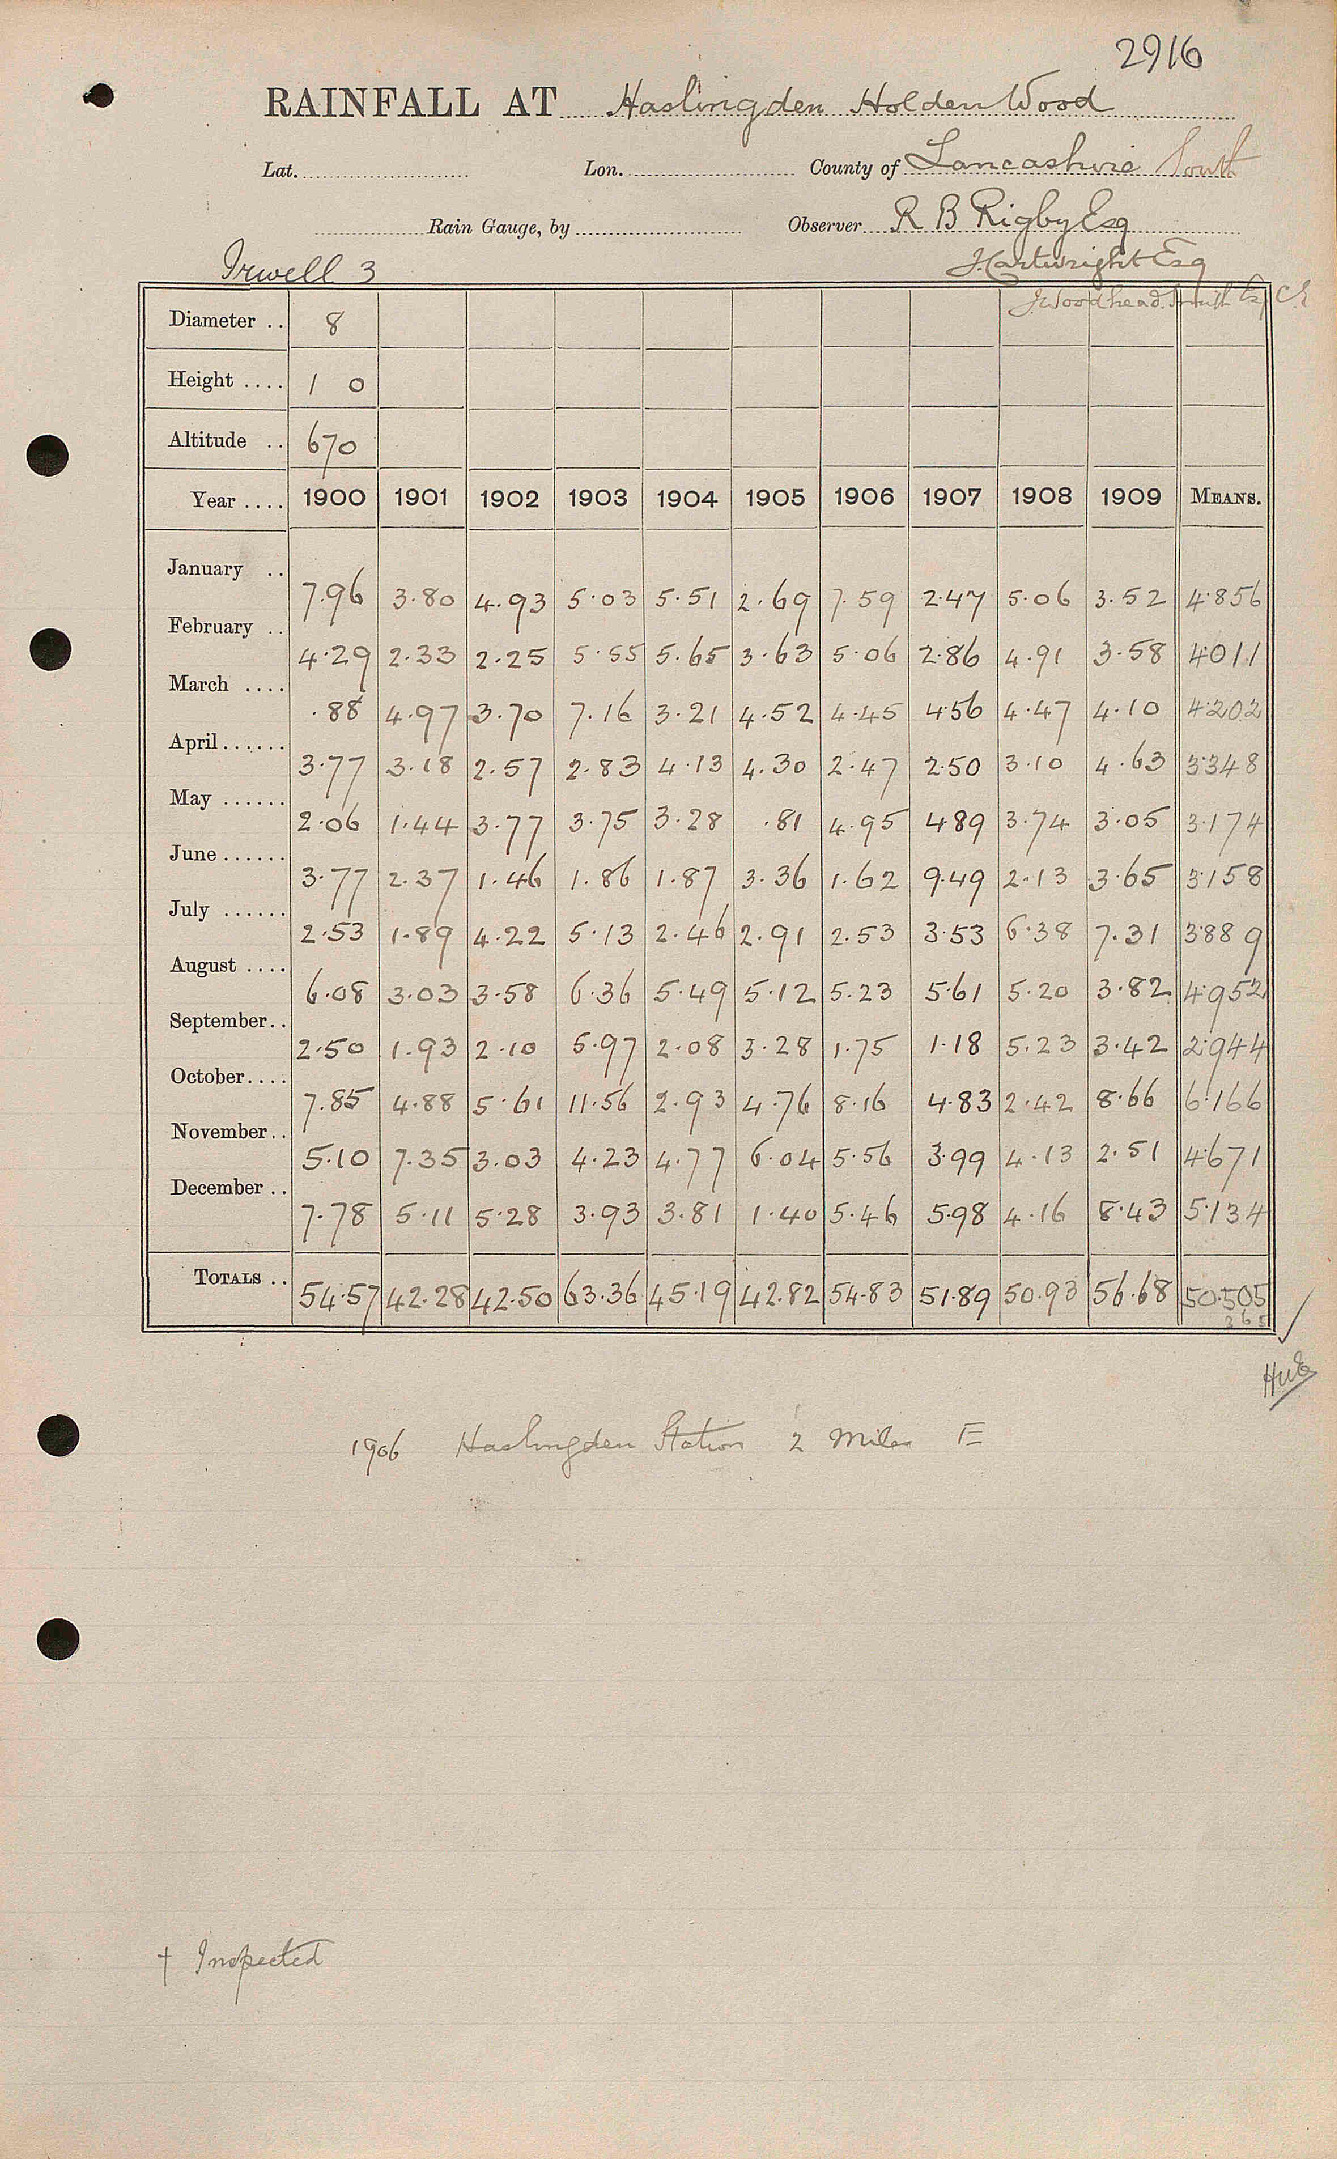 2916
RAINFALL AT Haslingden Holden Wood
Lat. Lon. County of Lancashire South
Rain Gauge, by Observer R B Rigby Esq
Irwell 3 J Cartwright Esq
J Woodhead Smith Esq C.E
Diameter .. 8
Height .... 1 0
Altitude .. 670
Year .... 1900 1901 1902 1903 1904 1905 1906 1907 1908 1909 MEANS.
January .. 7.96 3.80 4.93 5.03 5.51 2.69 7.59 2.47 5.06 3.52 4.856
February .. 4.29 2.33 2.25 5.55 5.65 3.63 5.06 2.86 4.91 3.58 4.011
March .... .88 4.97 3.70 7.16 3.21 4.52 4.45 4.56 4.47 4.10 4.202
April...... 3.77 3.18 2.57 2.83 4.13 4.30 2.47 2.50 3.10 4.63 3.348
May ...... 2.06 1.44 3.77 3.75 3.28 .81 4.95 4.89 3.74 3.05 3.174
June ...... 3.77 2.37 1.46 1.86 1.87 3.36 1.62 9.49 2.13 3.65 3.158
July ...... 2.53 1.89 4.22 5.13 2.46 2.91 2.53 3.53 6.38 7.31 3.889
August .... 6.08 3.03 3.58 6.36 5.49 5.12 5.23 5.61 5.20 3.82 4.952
September.. 2.50 1.93 2.10 5.97 2.08 3.28 1.75 1.18 5.23 3.42 2.944
October.... 7.85 4.88 5.61 11.56 2.93 4.76 8.16 4.83 2.42 8.66 6.166
November.. 5.10 7.35 3.03 4.23 4.77 6.04 5.56 3.99 4.13 2.51 4.671
December .. 7.78 5.11 5.28 3.93 3.81 1.40 5.46 5.98 4.16 8.43 5.134
TOTALS .. 54.57 42.28 42.50 63.36 45.19 42.82 54.83 51.89 50.93 56.68 50.505
365
1906 Haslingden Station 2 Miles E
† Inspected